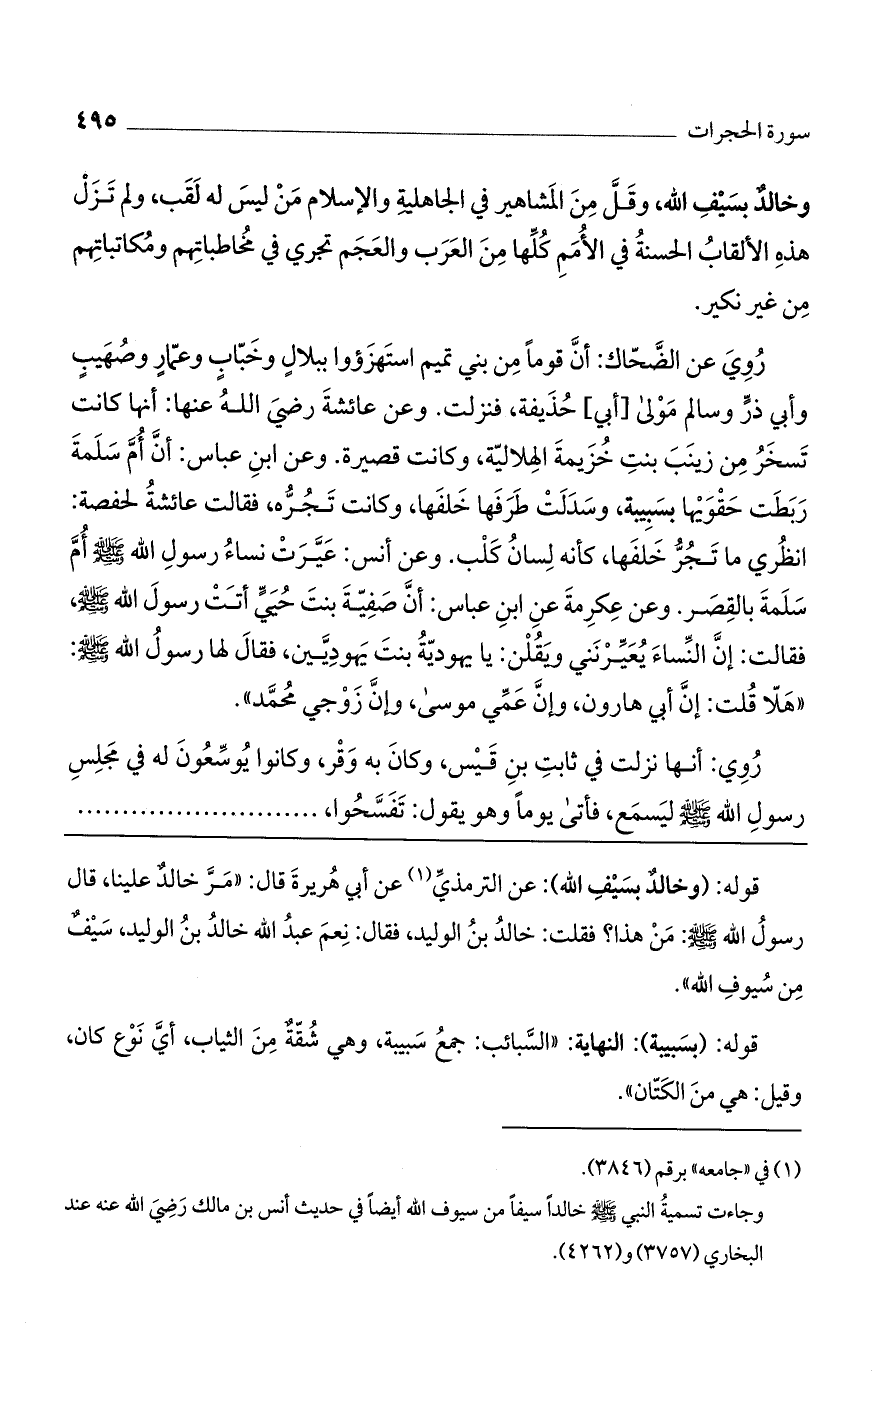 سورة الحجرات ٤٩٥
وخالدٌ بسَيْفِ الله، وقَلَّ مِنَ المَشاهير في الجاهليةِ والإسلام مَنْ ليسَ له لَقَب، ولم تَزَلْ
هذهِ الألقابُ الحسنةُ في الأُمَمِ كُلِّها مِنَ العَرَب والعَجَم تجري في مُخاطباتِهم ومُكاتباتِهم
مِن غير نكير.
رُوِيَ عن الضَّحّاك: أنَّ قوماً مِن بني تميم استَهزَؤوا ببلالٍ وخَبّابٍ وعمّارٍ وصُهَيبٍ
وأبي ذرٍّ وسالم مَوْلىٰ [أبي] حُذَيفة، فنزلت. وعن عائشةَ رضيَ اللهُ عنها: أنها كانت
تَسخَرُ مِن زينَبَ بنتِ خُزَيمةَ الهِلاليّة، وكانت قصيرة. وعن ابنِ عباس: أنَّ أُمَّ سَلَمةَ
رَبَطَت حَقْوَيْها بسَبِيبة، وسَدَلَتْ طَرَفَها خَلفَها، وكانت تَجُرُّه، فقالت عائشةُ لحفصة:
انظُري ما تَجُرُّ خَلفَها، كأنه لِسانُ كَلْب. وعن أنس: عَيَّرَتْ نساءُ رسولِ الله ﷺ أُمَّ
سَلَمةَ بالقِصَر. وعن عِكرِمةَ عنِ ابنِ عباس: أنَّ صَفِيّةَ بنتَ حُيَيٍّ أتَتْ رسولَ الله ﷺ،
فقالت: إنَّ النِّساءَ يُعَيِّرْنَني ويَقُلْن: يا يهوديّةُ بنتَ يَهودِيَّين، فقالَ لها رسولُ الله ﷺ:
«هَلّا قُلت: إنَّ أبي هارون، وإنَّ عَمِّي موسىٰ، وإنَّ زَوْجي مُحمَّد».
رُوِي: أنها نزلت في ثابتِ بنِ قَيْس، وكانَ به وَقْر، وكانوا يُوسِّعُونَ له في مَجلِسِ
رسولِ الله ﷺ ليَسمَع، فأتىٰ يوماً وهو يقول: تَفَسَّحُوا، ...........................
قوله: (وخالدٌ بسَيْفِ الله): عن الترمذيِّ(١) عن أبي هُريرةَ قال: «مَرَّ خالدٌ علينا، قال
رسولُ الله ﷺ: مَنْ هذا؟ فقلت: خالدُ بنُ الوليد، فقال: نِعمَ عبدُ الله خالدُ بنُ الوليد، سَيْفٌ
مِن سُيوفِ الله».
قوله: (بسَبِيبة): النهاية: «السَّبائب: جمعُ سَبيبة، وهي شُقّةٌ مِنَ الثياب، أيَّ نَوْع كان،
وقيل: هي منَ الكَتّان».
(١) في «جامعه» برقم (٣٨٤٦).
وجاءت تسميةُ النبي ﷺ خالداً سيفاً من سيوف الله أيضاً في حديث أنس بن مالك رَضِيَ الله عنه عند
البخاري (٣٧٥٧) و(٤٢٦٢).